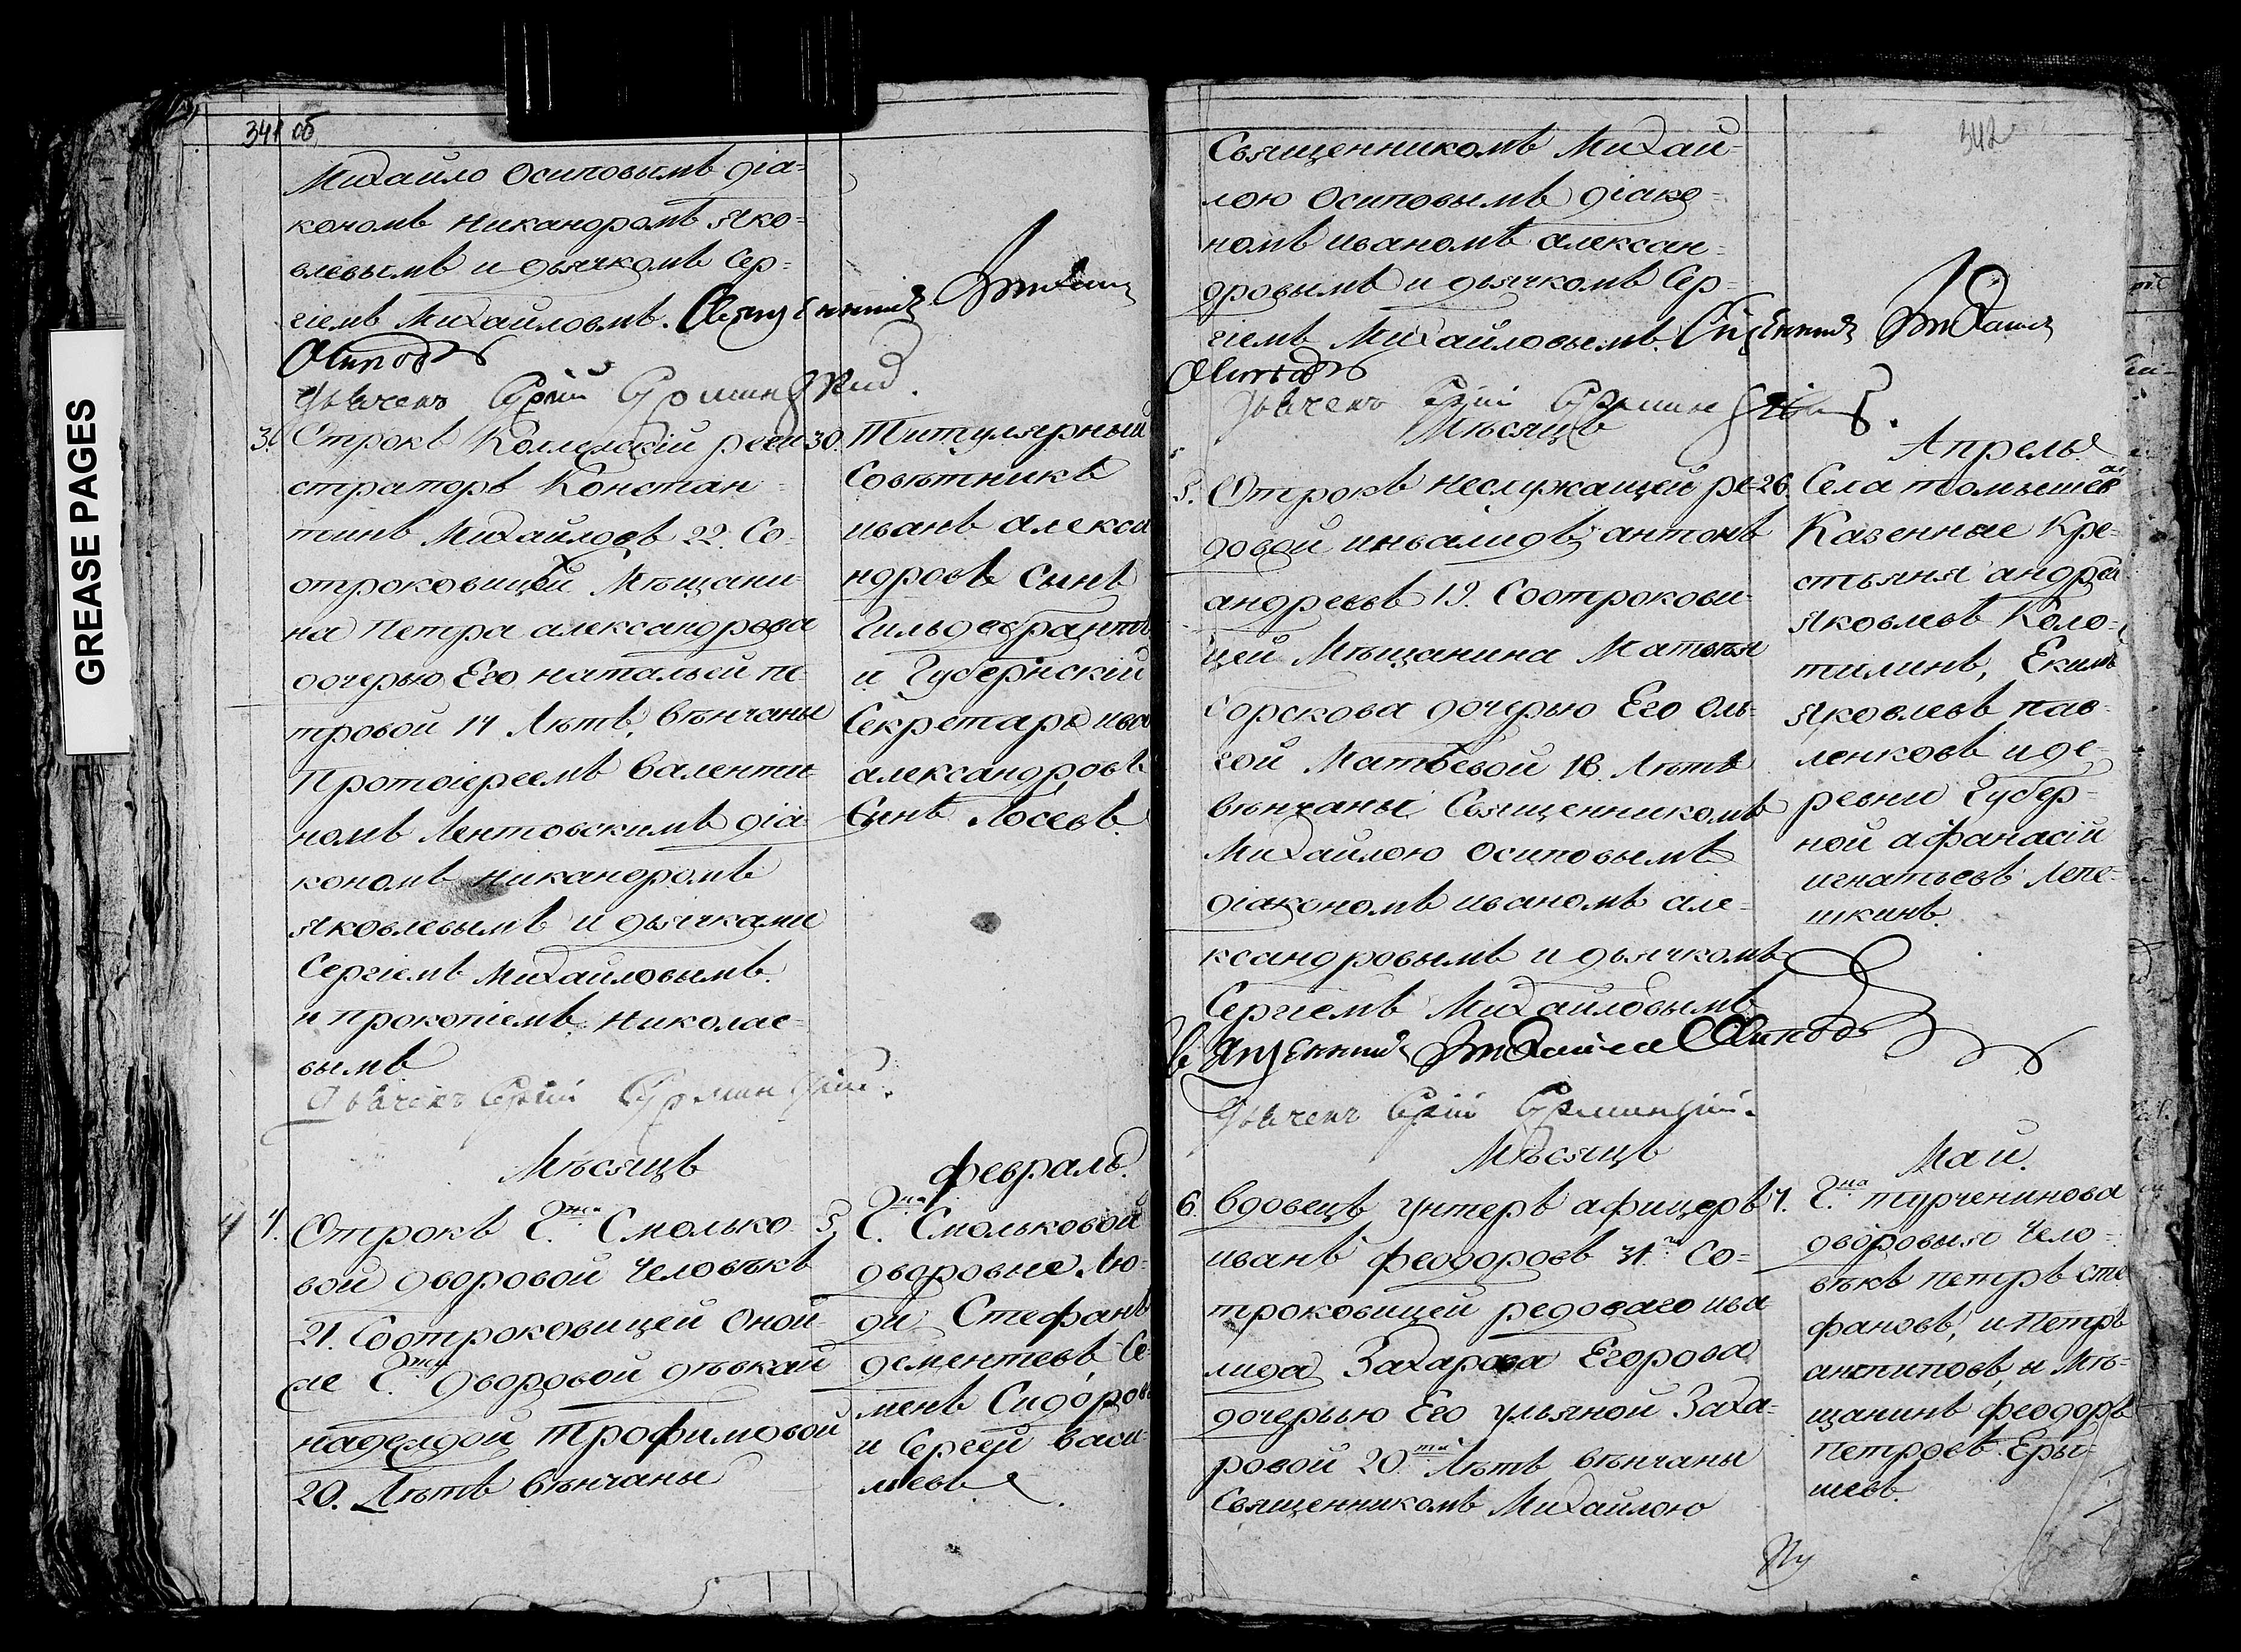 GREASE PAGES
341 об
Михайло Осиповымъ діа-
кономъ Никандромъ Яко-
влевымъ и дьячкомъ Сер-
гіемъ Михайловмъ. Священникъ Михаилъ
Осиповъ
Дьячекъ Сергій
3. Отрокъ Коллежскій реги-
страторъ Констан-
тинъ Михайловъ 22. Со
отроковицей Мѣщани-
на Петра александрова
дочерью Его натальей пе-
тровой 17 Лѣтъ, вѣнчаны
Протоіереемъ Валенти-
номъ Лентовскимъ діа-
кономъ Никандромъ
Яковлевымъ и дьячками
Сергіемъ Михайловымъ
и Прокопіемъ Николае-
вымъ
Дьячекъ Сергій
30. Титулярный
Совѣтникъ
иванъ алекса
ндровъ Сынъ
Гильдебрантъ
и Губернскій
Секретарь ива
александровъ
Сынъ Лосевъ.
Мѣсяцъ Февраль.
4 4. Отрокъ Г.жи Смолько-
вой дворовой Человѣкъ
21. Соотроковицей оной
же Г.жи дворовой дѣвкай
надеждой Трофимовой
20. Лѣтъ вѣнчаны
5. Г.жи Смольковой
дворовые Лю-
ди Стефанъ
дементьевъ, Се-
менъ Сидоровъ
и Сергей васи-
льевъ
342
Священникомъ Михай-
лою Осиповымъ діако-
номъ иваномъ алексан-
дровымъ и дьячкомъ Сер-
гіемъ Михайловымъ. Священникъ Михаилъ
Осиповъ
Дьячекъ Сергій
Мѣсяцъ Апрель
5. Отрокъ неслужащей ре-
довой инвалидъ антонъ
андреевъ 19. Соотрокови-
цей Мѣщанина Матвѣя
Сорскова дочерью Его Оль-
гой Матвѣевой 18. Лѣтъ
вѣнчаны Священникомъ
Михайлою Осиповымъ
діакономъ иваномъ але-
ксандровымъ и дьячкомъ
Сергіемъ Михайловымъ
Священникъ Михаилъ Осиповъ
Дьячекъ Сергій
26. Села томышева
Казенные Кре-
стьяня андрей
Яковлевъ Коло-
тилинъ, Екимъ
Яковлевъ пав-
ленковъ и де-
ревни Губер-
ной афанасій
игнатьевъ Лепе-
шкинъ.
Мѣсяцъ Май.
6. вдовецъ унтеръ афицеръ
иванъ феодоровъ 31. Со-
троковицей редоваго ива
лида Захарова Егорова
дочерьью Его ульяной Заха-
ровой 20.ти Лѣтъ вѣнчаны
Священникомъ Михайлою
7. Г.на турченинова
дворовыя Чело-
вѣкъ петръ сте
фановъ, и Петръ
антиповъ, и Мѣ-
щанинъ феодоръ
петровъ Еры-
шевъ.